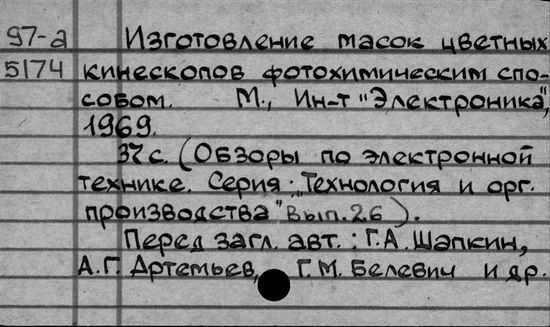 97-а Изготовление масок цветных
5174 кинескопов фотохимическим спо-
собом. М., Ин-т "Электроника",
1969.
37 с. (Обзоры по электронной
технике. Серия: "Технология и орг.
производства" Вып. 26).
Перед загл. авт.: Г.А. Шапкин,
А.Г. Артемьев, Г.М. Белевич и др.